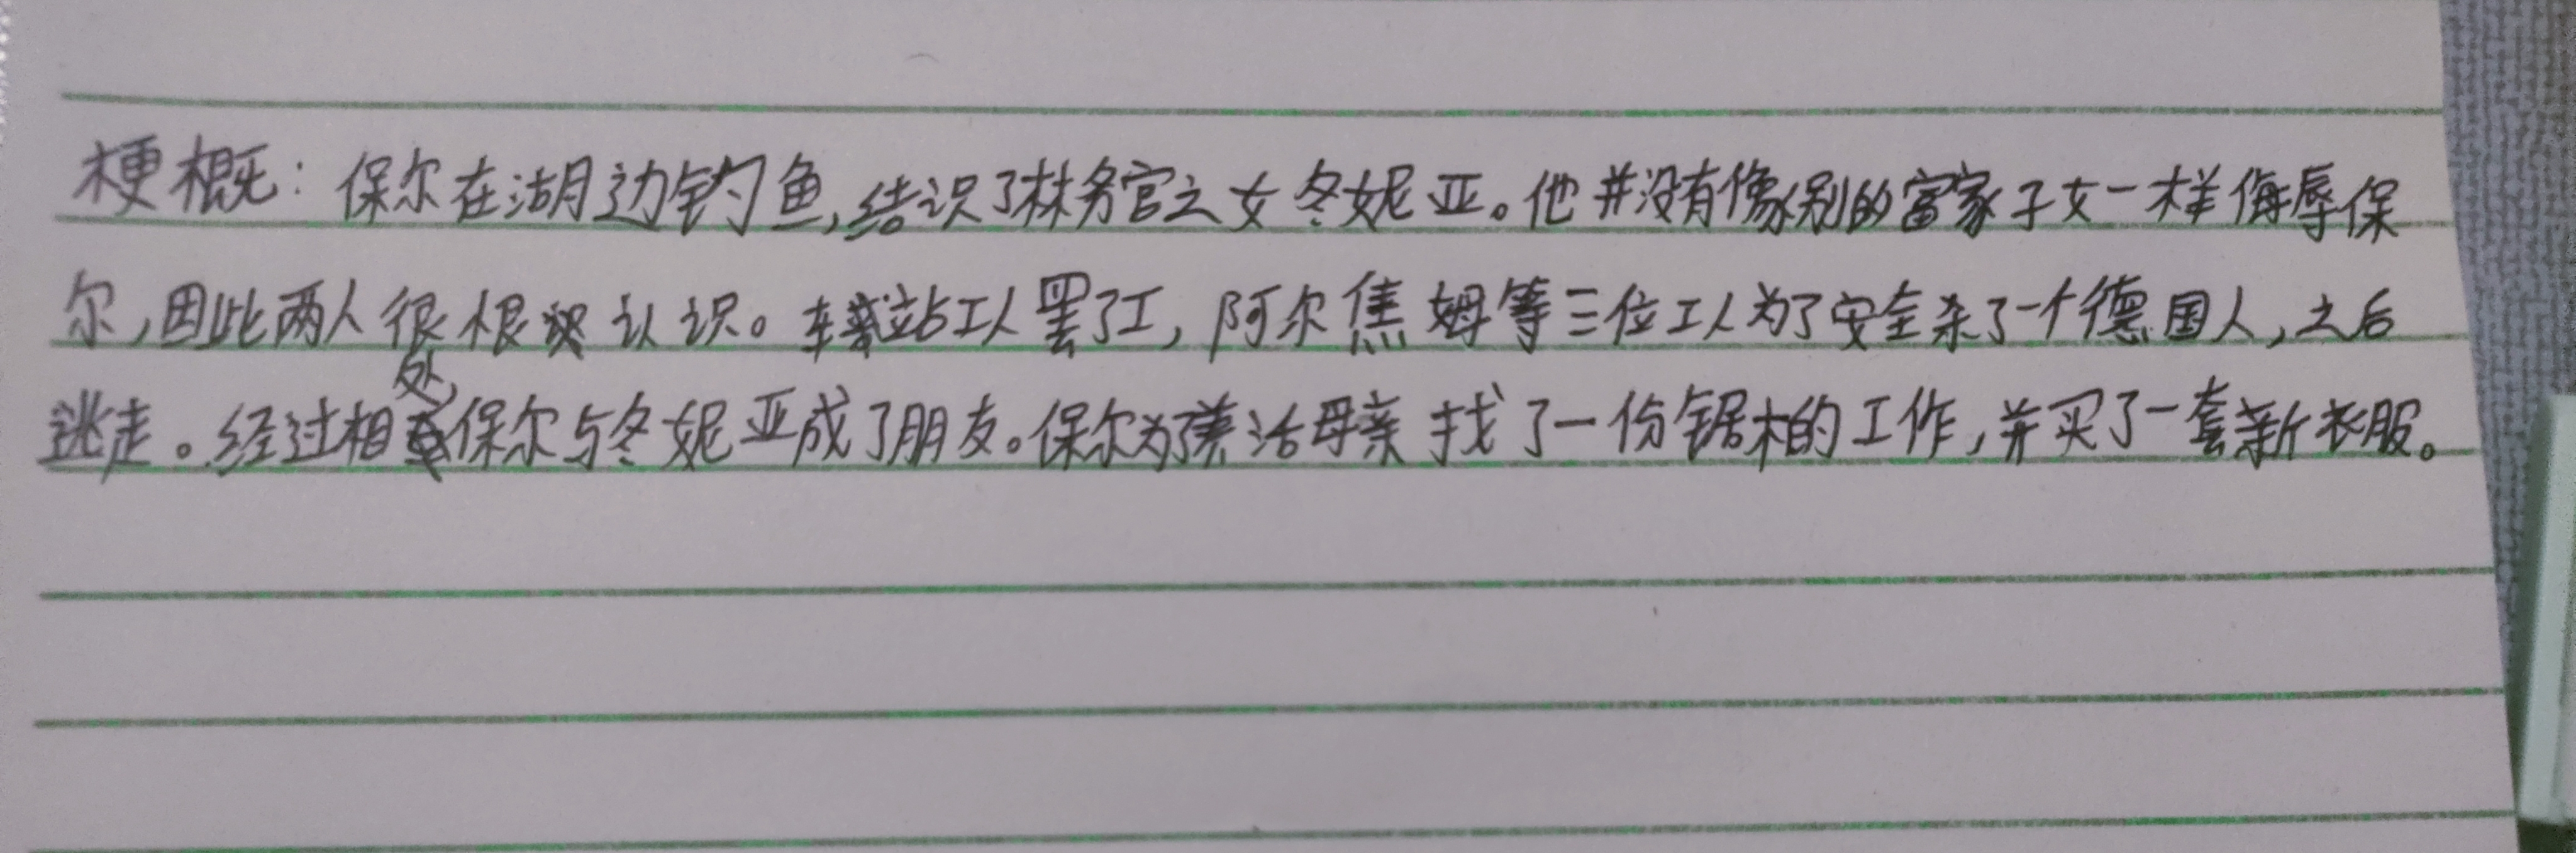 梗概：保尔在湖边钓鱼,结识了林务官之女冬妮亚。他并没有像别的富家子女一样侮辱保
尔,因此两人很根 认识。车站工人罢了工,阿尔焦姆等三位工人为了安全杀了一个德国人,之后
逃走。经过相处,保尔与冬妮亚成了朋友。保尔为了养活母亲找了一份锯木的工作,并买了一套新衣服。